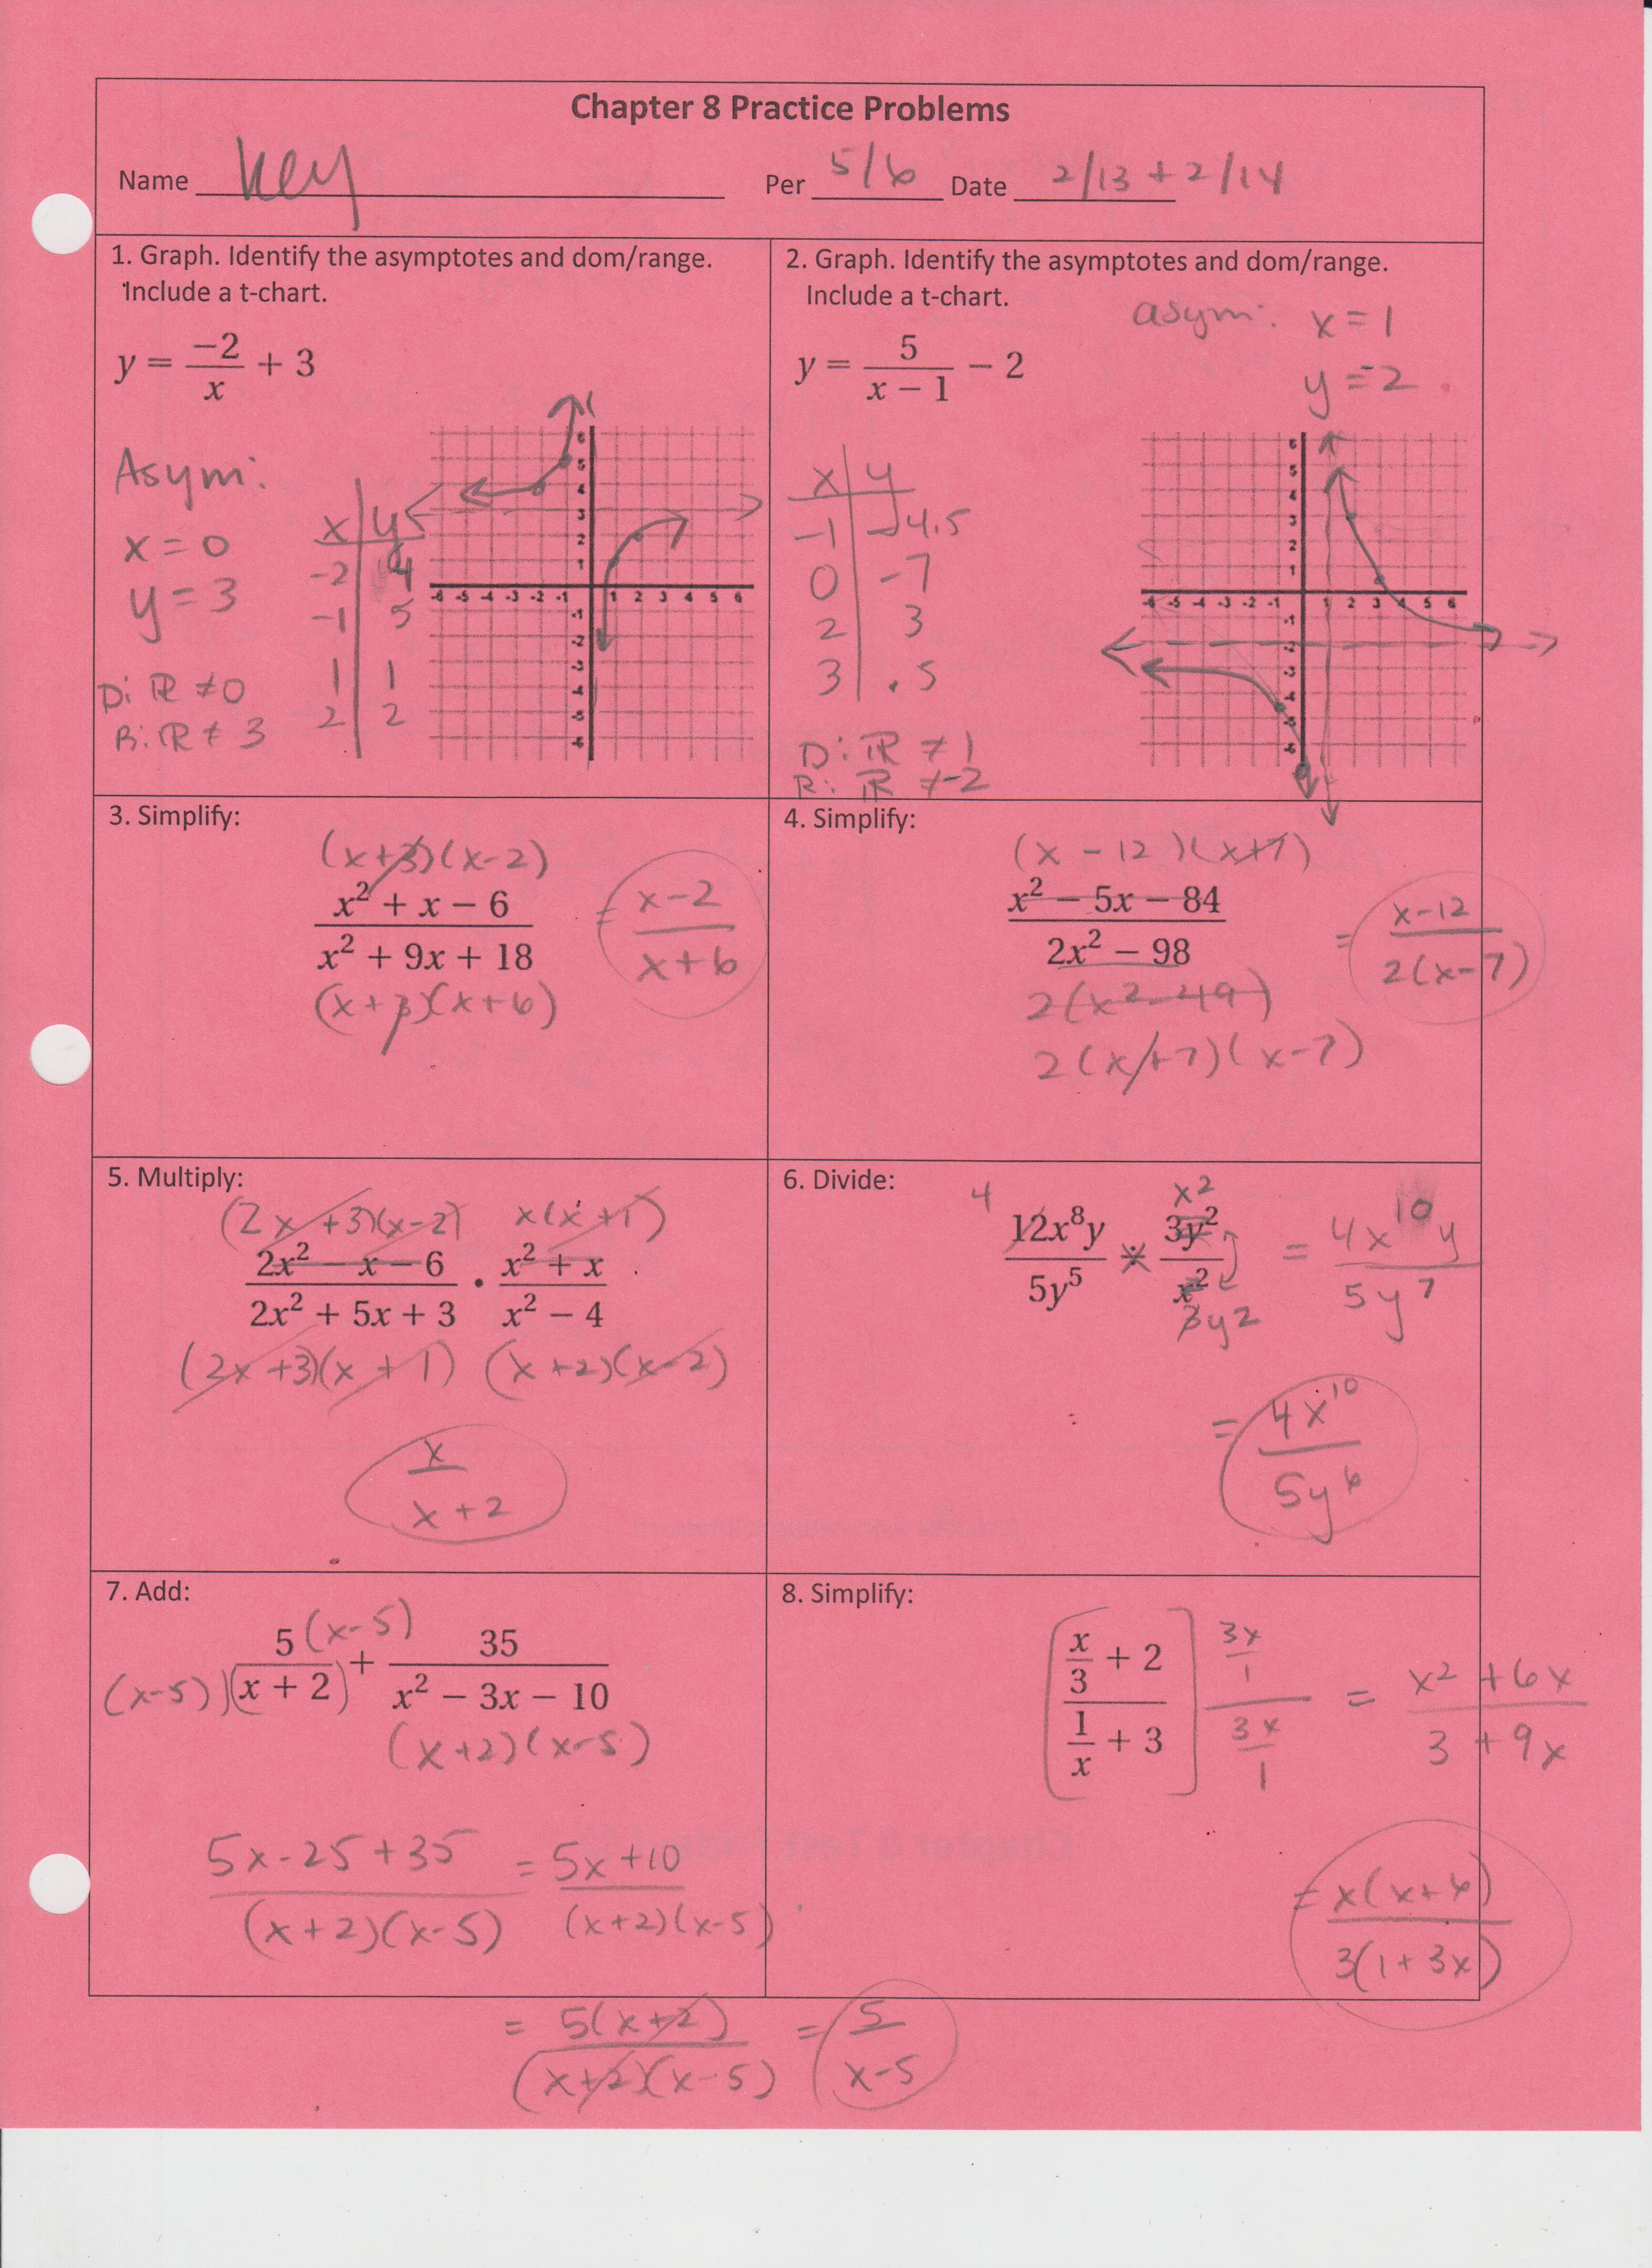 Chapter 8 Practice Problems
Name Key Per 5/6 Date 2/13 + 2/14
1. Graph. Identify the asymptotes and dom/range.
Include a t-chart.
y = -2/x + 3
Asym:
x = 0
y = 3
D: ℝ ≠ 0
R: ℝ ≠ 3
x | y
-2 | 4
-1 | 5
1 | 1
2 | 2
2. Graph. Identify the asymptotes and dom/range.
Include a t-chart.
asym: x = 1
y = -2
y = 5/(x - 1) - 2
x | y
-1 | -4.5
0 | -7
2 | 3
3 | .5
D: ℝ ≠ 1
R: ℝ ≠ -2
3. Simplify:
(x+3)(x-2)
x² + x - 6
x² + 9x + 18
(x+3)(x+6)
= x-2
x+6
4. Simplify:
(x - 12)(x+7)
x² - 5x - 84
2x² - 98
2(x²-49)
2(x+7)(x-7)
= x-12
2(x-7)
5. Multiply:
(2x+3)(x-2) x(x+1)
2x² - x - 6 · x² + x
2x² + 5x + 3 x² - 4
(2x+3)(x+1) (x+2)(x-2)
x
x+2
6. Divide:
4 x²
12x⁸y ÷ 3y²
5y⁵ x²
3y2
= 4x¹⁰y
5y⁷
= 4x¹⁰
5y⁶
7. Add:
5(x-5) + 35
(x-5)(x + 2) x² - 3x - 10
(x+2)(x-5)
5x-25+35 = 5x+10
(x+2)(x-5) (x+2)(x-5)
= 5(x+2) = 5
(x+2)(x-5) x-5
8. Simplify:
x/3 + 2 3x/1
1/x + 3 3x/1
= x² + 6x
3 + 9x
= x(x+6)
3(1+3x)